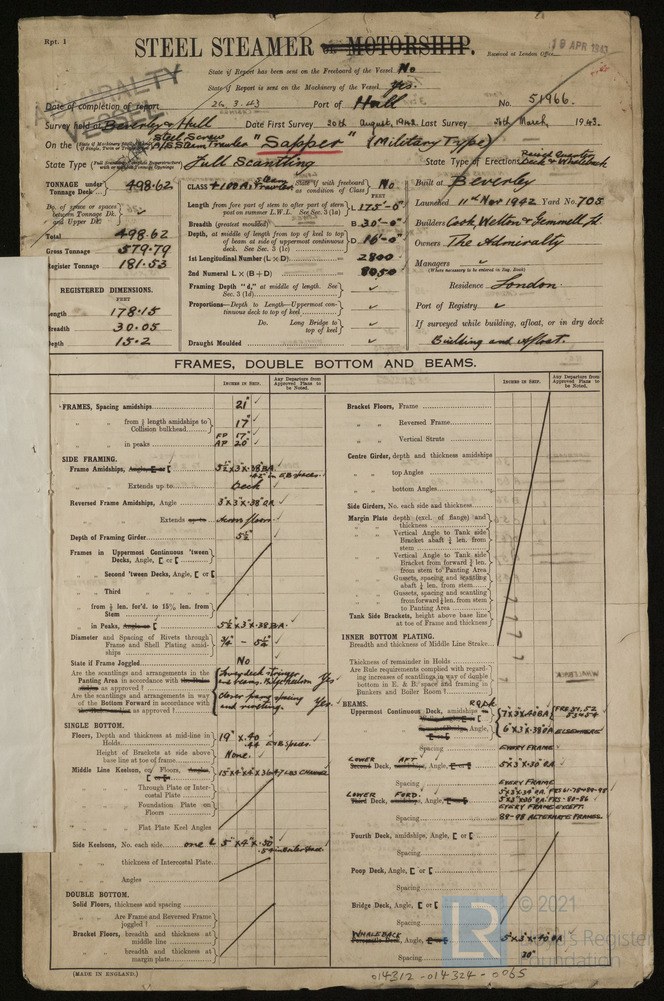 Rpt. 1
STEEL STEAMER or MOTORSHIP.
Received at London Office
19 APR 1943
State if Report has been sent on the Freeboard of the Vessel No
State if Report is sent on the Machinery of the Vessel Yes.
ADMIRALTY VESSEL
Date of completion of report 26.3.43 Port of Hull No. 51966.
Survey held at Beverley & Hull Date First Survey 20th August, 1942 Last Survey March 1943.
On the Steel Screw Steam Trawler "Sapper" (Military Type)
State Type Full Scantling State Type of Erections Raised Quarter Deck & Whaleback
TONNAGE under Tonnage Deck 498.62
Do. of space or spaces between Tonnage Dk. and Upper Dk.
Total 498.62
Gross Tonnage 579.79
Register Tonnage 181.53
REGISTERED DIMENSIONS.
FEET
Length 178.15
Breadth 30.05
Depth 15.2
CLASS +100A1 Steam Trawler State if with freeboard as condition of Class No
FEET
Length from fore part of stem to after part of stern post on summer L.W.L. See Sec. 3 (1a) L 175'-0"
Breadth (greatest moulded) B 30'-0"
Depth, at middle of length from top of keel to top of beam at side of uppermost continuous deck. See Sec. 3 (1c) D 16'-0"
1st Longitudinal Number (L × D) 2800
2nd Numeral L × (B + D) 8050
Framing Depth "d," at middle of length. See Sec. 3 (1d)
Proportions—Depth to Length—Uppermost continuous deck to top of keel
Do. Long Bridge to top of keel
Draught Moulded
Built at Beverley
Launched 11th Nov 1942 Yard No. 705
Builders Cook, Welton & Gemmell Ld.
Owners The Admiralty
Managers
(Where necessary to be entered in Reg. Book)
Residence London.
Port of Registry
If surveyed while building, afloat, or in dry dock
Building and Afloat.
FRAMES, DOUBLE BOTTOM AND BEAMS.
INCHES IN SHIP.
Any Departure from Approved Plans to be Noted.
INCHES IN SHIP.
Any Departure from Approved Plans to be Noted.
FRAMES, Spacing amidships 21"
length amidships to Collision bulkhead 17"
in peaks FP 17" AP 20"
SIDE FRAMING.
Frame Amidships, 5½ x 3 x .38 BA
Extends up to Deck
Reversed Frame Amidships, Angle 3 x 3 x .38 BA
Extends Across floors
Depth of Framing Girder 5½"
Frames in Uppermost Continuous 'tween Decks, Angle, [ or [
Second 'tween Decks, Angle, [ or [
Third
from ½ len. for'd. to 15% len. from Stem
in Peaks, 5½ x 3 x .38 BA
Diameter and Spacing of Rivets through Frame and Shell Plating amidships ¾" - 5¼"
State if Frame Joggled No
Are the scantlings and arrangements in the Panting Area in accordance with as approved? Yes
Are the scantlings and arrangements in way of the Bottom Forward in accordance with as approved? Closer frame spacing and riveting. Yes
SINGLE BOTTOM.
Floors, Depth and thickness at mid-line in Holds 19" x .40
.44 E & B Space.
Height of Brackets at side above base line at toe of frame None.
Middle Line Keelson, on Floors,
Through Plate or Intercostal Plate
Foundation Plate on Floors
Flat Plate Keel Angles
Side Keelsons, No. each side one 5" x 4" x .50"
thickness of Intercostal Plate
Angles
DOUBLE BOTTOM.
Solid Floors, thickness and spacing
Are Frame and Reversed Frame joggled?
Bracket Floors, breadth and thickness at middle line
breadth and thickness at margin plate
Bracket Floors, Frame
Reversed Frame
Vertical Struts
Centre Girder, depth and thickness amidships
top Angles
bottom Angles
Side Girders, No. each side and thickness
Margin Plate depth (excl. of flange) and thickness
Vertical Angle to Tank side Bracket abaft ¼ len. from stem
Vertical Angle to Tank side Bracket from forward ¼ len. from stem to Panting Area
Gussets, spacing and scantling abaft ¼ len. from stem
Gussets, spacing and scantling from forward ¼ len. from stem to Panting Area
Tank Side Brackets, height above base line at toe of Frame and thickness
INNER BOTTOM PLATING.
Breadth and thickness of Middle Line Strake
Thickness of remainder in Holds
Are Rule requirements complied with regarding increases of scantlings in way of double bottom in E. & B. space and framing in Bunkers and Boiler Room?
BEAMS.
Uppermost Continuous Deck, amidships RQDK 7 x 3 x .40 BA
6 x 3 x .38 BA ELSEWHERE
Spacing EVERY FRAME
LOWER AFT Deck, 5 x 3 x .30 BA
Spacing EVERY FRAME
LOWER FORD. Deck, amidships, Angle,
EVERY FRAME EXCEPT
Spacing 88-98 ALTERNATE FRAMES
Fourth Deck, amidships, Angle, [ or [
Spacing
Poop Deck, Angle, [ or [
Spacing
Bridge Deck, Angle, [ or [
Spacing
WHALEBACK Deck, Angle, 5 x 3 x .40 BA
Spacing 30"
(MADE IN ENGLAND.)
014312-014324-0065
LR
© 2021
Lloyd's Register Foundation